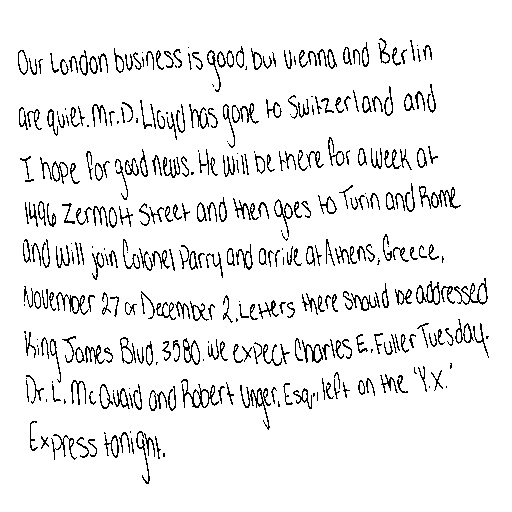 Our London business is good, but Vienna and Berlin
are quiet. Mr. D. Lloyd has gone to Switzerland and
I hope for good news. He will be there for a week at
1496 Zermott Street and then goes to Turin and Rome
and will join Colonel Parry and arrive at Athens, Greece,
November 27 or December 2. Letters there should be addressed
King James Blvd. 3580. We expect Charles E. Fuller Tuesday.
Dr. L. McQuaid and Robert Unger, Esq., left on the "Y.X."
Express tonight.